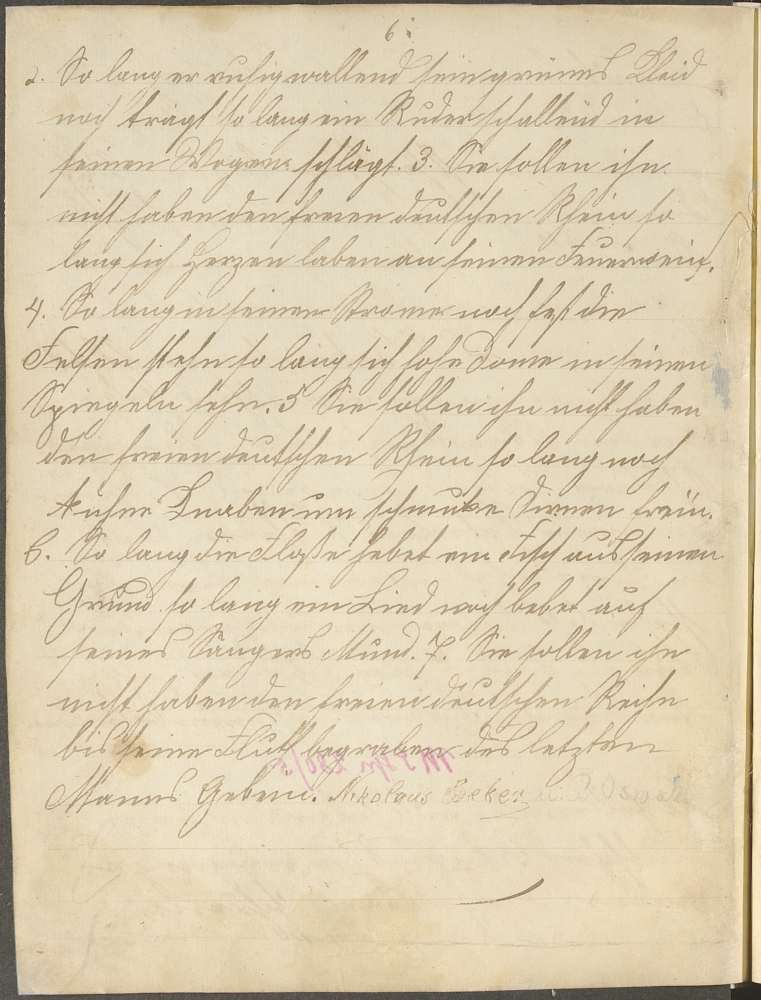 6.
2. So lang er ruhig wallend sein grünes Kleid
noch trägt so lang ein Ruder schallend in
seinen Wogen schlägt. 3. Sie sollen ihn
nicht haben den freien deutschen Rhein so
lang sich Herzen laben an seinen Feuerwein.
4. So lang in seinem Strome noch fest die
Felsen stehn so lang sich hohe Dome in seinen
Spiegeln sehn. 5 Sie sollen ihn nicht haben
den freien deutschen Rhein so lang noch
kuhne Knaben um schmuke Dirnen frein.
6. So lang die Floße hebet ein Fisch aus seinen
Grund so lang ein Lied noch bebet auf
seines Sängers Mund. 7. Sie sollen ihn
nicht haben den freien deutschen Reihn
bis seine Fluth begraben des letzten
Manns Gebein. Nikolaus Beker